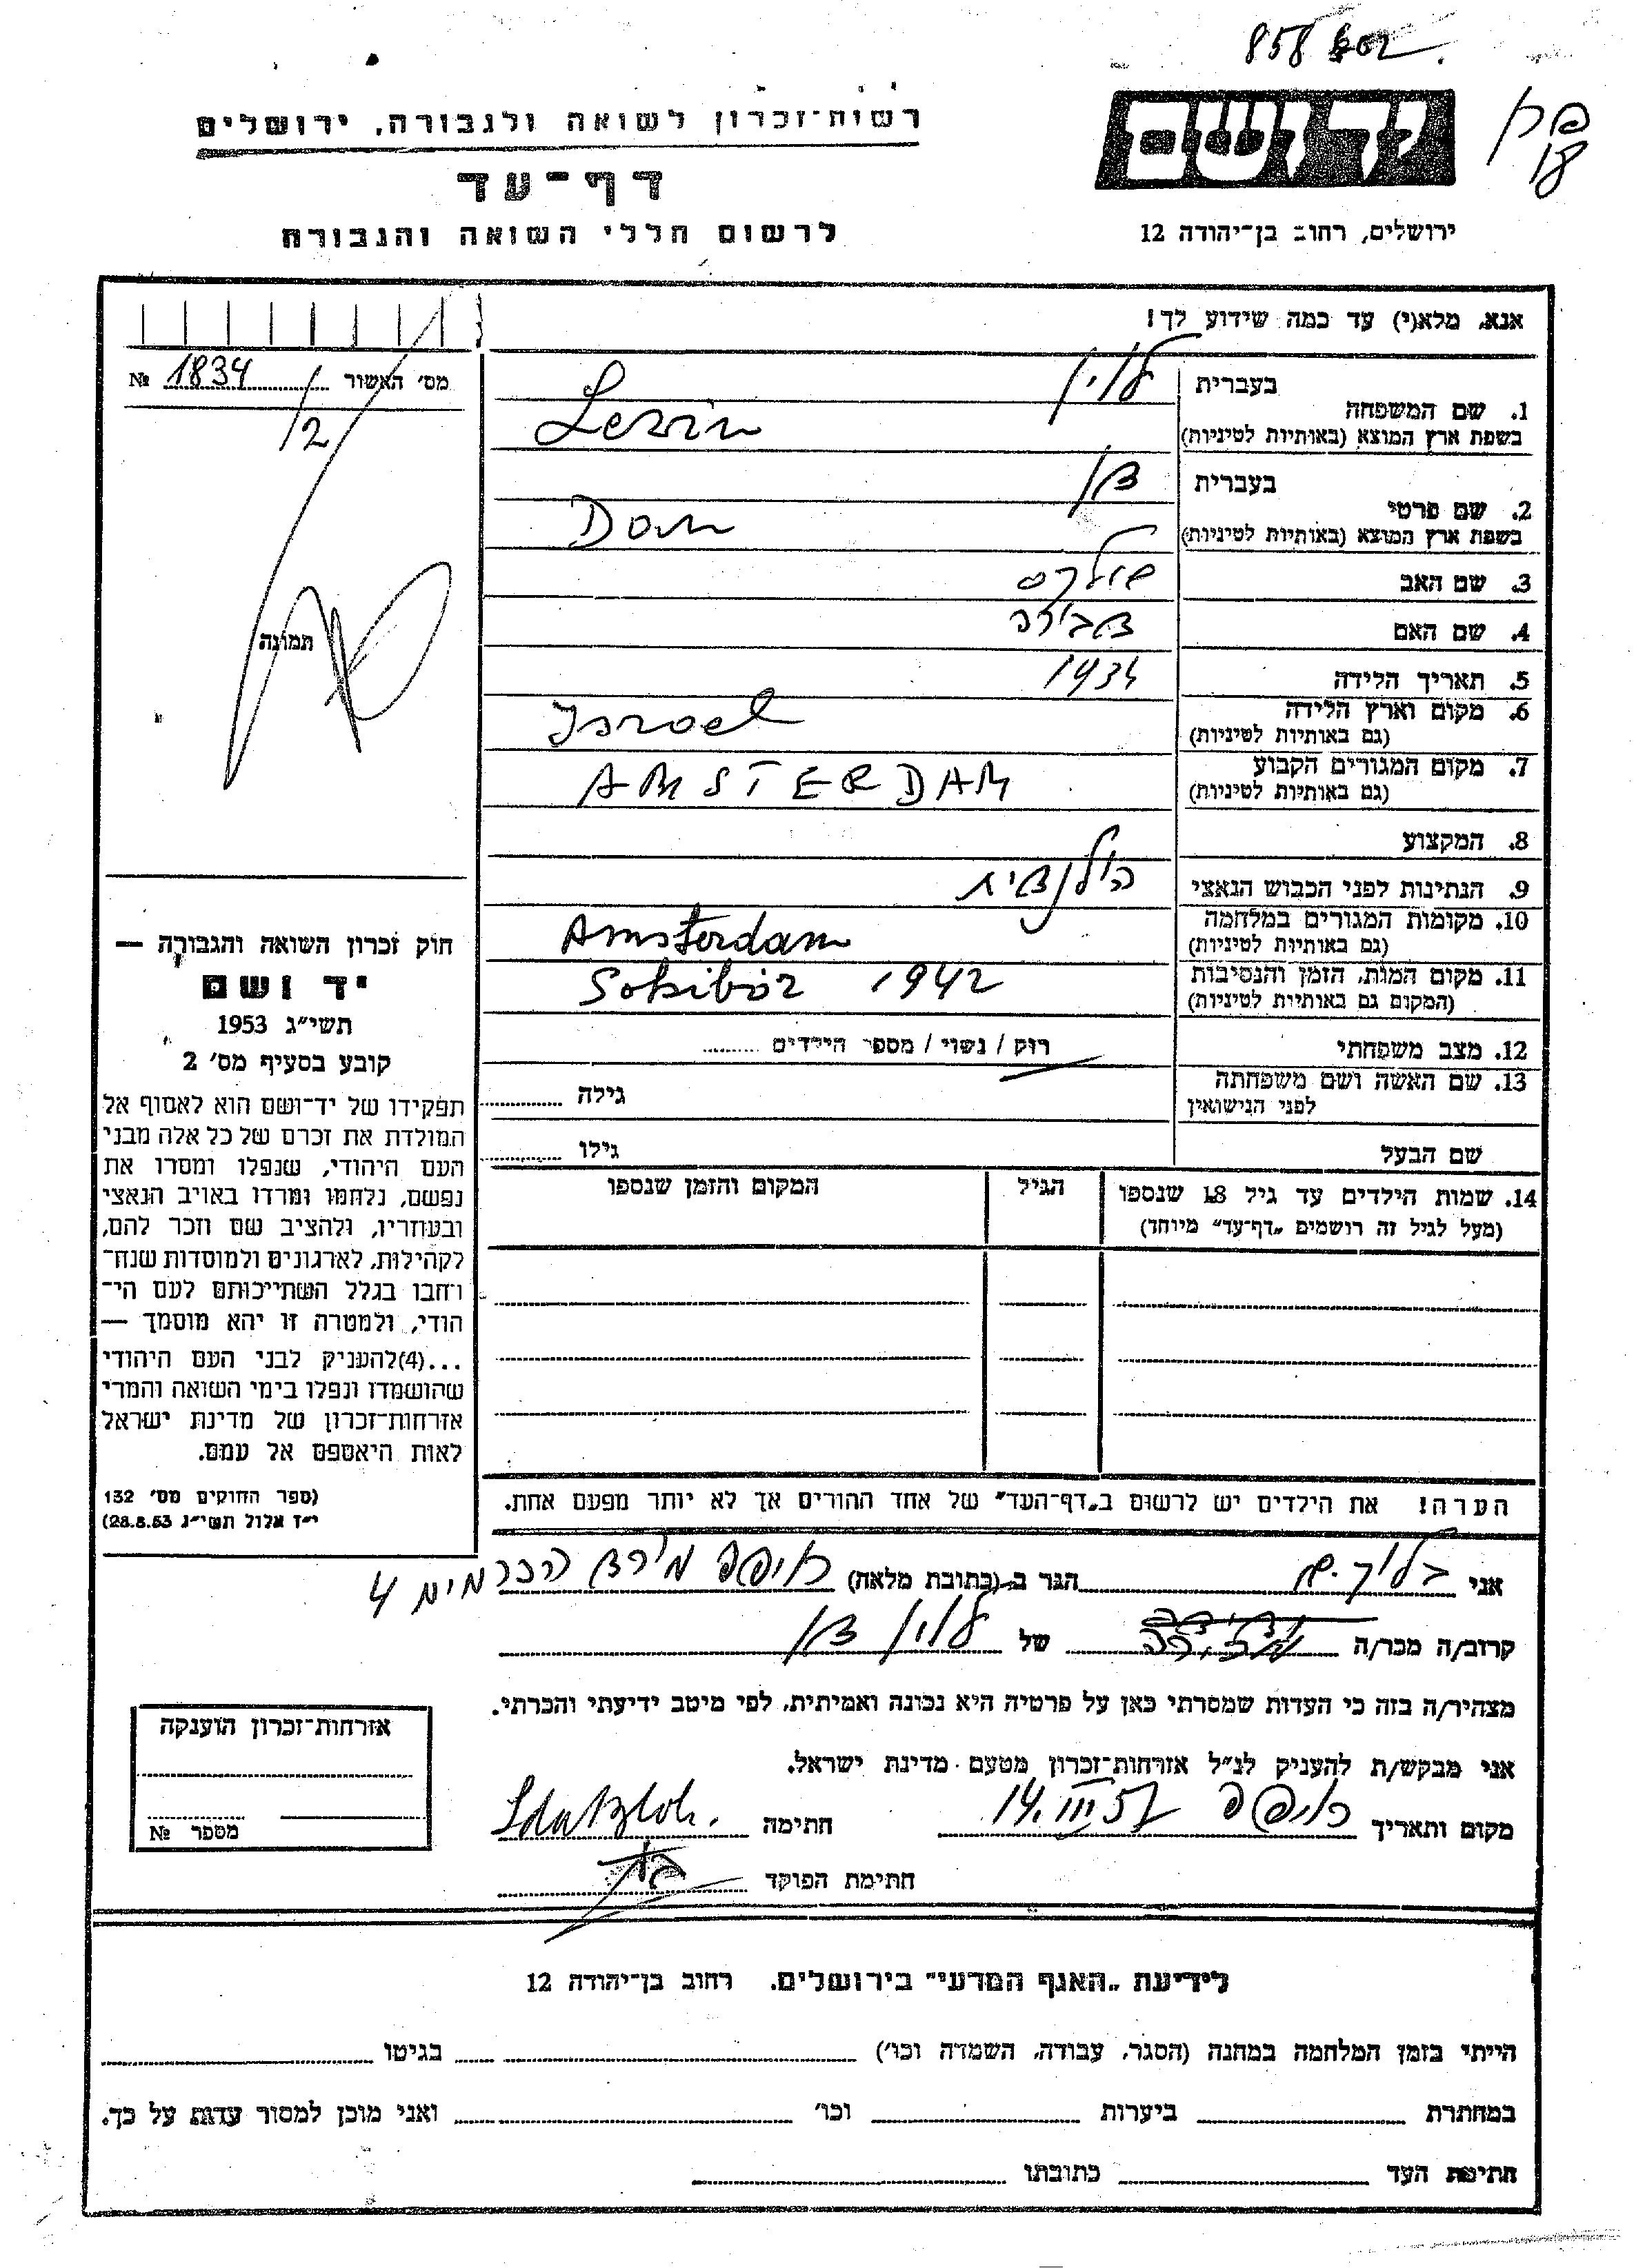 858
יד ושם
רשות־זכרון לשואה ולגבורה, ירושלים
דף־עד
לרשום חללי השואה והגבורה
ירושלים, רחוב בן־יהודה 12
אנא, מלא(י) עד כמה שידוע לך!
מס' האשור № 1834
1/2
תמונה
1. שם המשפחה בעברית לוין
בשפת ארץ המוצא (באותיות לטיניות) Levin
2. שם פרטי בעברית דן
בשפת ארץ המוצא (באותיות לטיניות) Dan
3. שם האב
4. שם האם דבורה
5. תאריך הלידה 1934
6. מקום וארץ הלידה Israel
(גם באותיות לטיניות)
7. מקום המגורים הקבוע AMSTERDAM
(גם באותיות לטיניות)
8. המקצוע
9. הנתינות לפני הכבוש הנאצי הולנדית
10. מקומות המגורים במלחמה Amsterdam
(גם באותיות לטיניות)
11. מקום המות, הזמן והנסיבות Sobibor 1942
(המקום גם באותיות לטיניות)
12. מצב משפחתי רוק / נשוי / מספר הילדים
13. שם האשה ושם משפחתה גילה
לפני הנישואין
שם הבעל גילו
14. שמות הילדים עד גיל 18 שנספו הגיל המקום והזמן שנספו
(מעל לגיל זה רושמים „דף־עד" מיוחד)
הערה! את הילדים יש לרשום ב„דף־העד" של אחד ההורים אך לא יותר מפעם אחת.
חוק זכרון השואה והגבורה —
יד ושם
תשי״ג 1953
קובע בסעיף מס' 2
תפקידו של יד־ושם הוא לאסוף אל
המולדת את זכרם של כל אלה מבני
העם היהודי, שנפלו ומסרו את
נפשם, נלחמו ומרדו באויב הנאצי
ובעוזריו, ולהציב שם וזכר להם,
לקהילות, לארגונים ולמוסדות שנח־
רחבו בגלל השתייכותם לעם הי־
הודי, ולמטרה זו יהא מוסמך —
...(4)להעניק לבני העם היהודי
שהושמדו ונפלו בימי השואה והמרי
אזרחות־זכרון של מדינת ישראל
לאות היאספם אל עמם.
(ספר החוקים מס' 132
י״ז אלול תשי״ג 28.8.53)
אני בלוך הגר ב־(כתובת מלאה) חיפה 4
קרוב/ה מכר/ה של לוין דן
מצהיר/ה בזה כי העדות שמסרתי כאן על פרטיה היא נכונה ואמיתית, לפי מיטב ידיעתי והכרתי.
אני מבקש/ת להעניק לנ״ל אזרחות־זכרון מטעם מדינת ישראל.
מקום ותאריך חיפה 14.III.57 חתימה
חתימת הפוקד
אזרחות־זכרון הוענקה
מספר №
לידיעת „האגף המדעי" בירושלים. רחוב בן־יהודה 12
הייתי בזמן המלחמה במחנה (הסגר, עבודה, השמדה וכו') בגיטו
במחתרת ביערות וכו' ואני מוכן למסור עדות על כך.
חתימת העד כתובתו